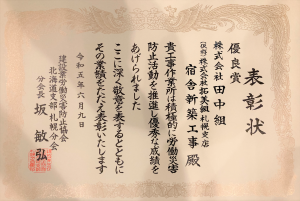 表彰状
優良賞
株式会社 田中組
(仮称)株式会社拓美組札幌支店
宿舎新築工事 殿
貴工事作業所は積極的に労働災害
防止活動を推進し優秀な成績を
あげられました
ここに深く敬意を表するとともに
その業績をたたえ表彰いたします
令和五年六月九日
建設業労働災害防止協会
北海道支部札幌分会
分会長 坂 敏弘